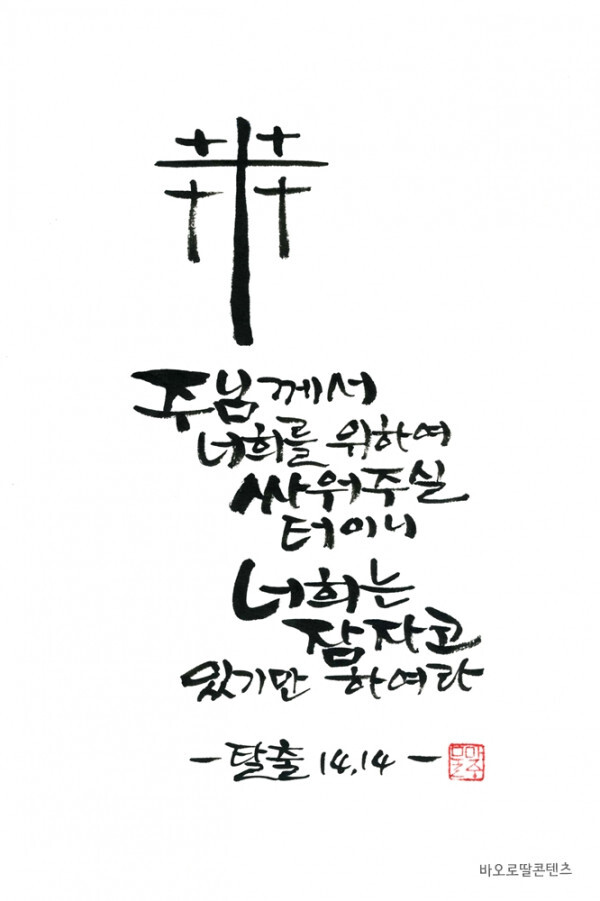 주님께서
너희를 위하여
싸워주실
터이니
너희는
잠자코
있기만 하여라
- 탈출 14,14 -
바오로딸콘텐츠